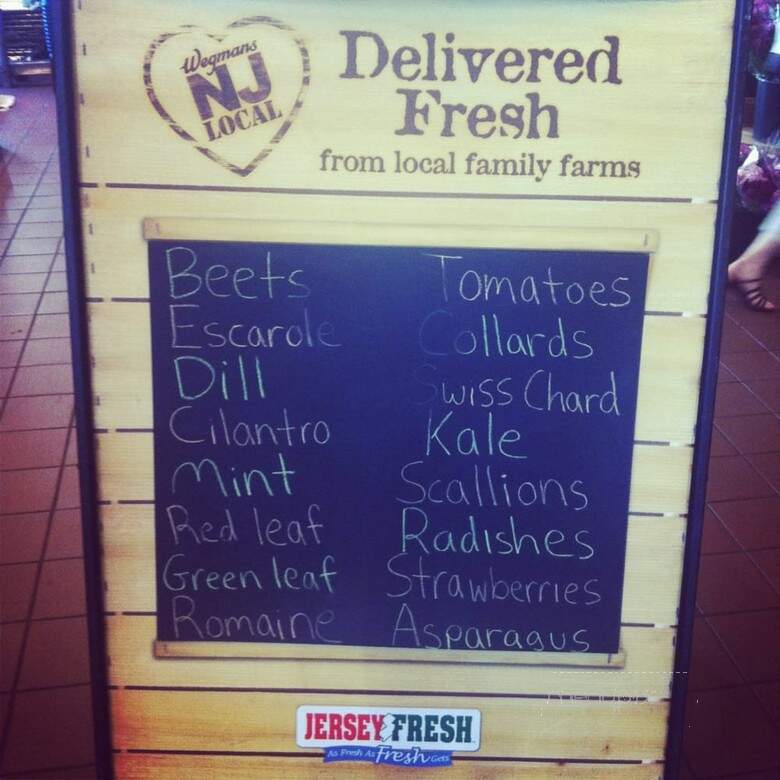 Wegmans
NJ
LOCAL
Delivered
Fresh
from local family farms
Beets
Escarole
Dill
Cilantro
Mint
Red leaf
Green leaf
Romaine
Tomatoes
Collards
Swiss Chard
Kale
Scallions
Radishes
Strawberries
Asparagus
JERSEY FRESH
As Fresh As Fresh Gets